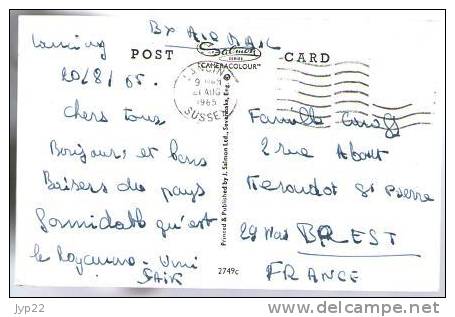 BY AIR MAIL
POST CARD
Salmon
SERIES
"CAMERACOLOUR"™
LANCING
21 AUG
1965
SUSSEX
Lancing
20/8/65.
Chers tous
Bonjours et bons
Baisers du pays
formidable qu'est
le Royaume-Uni
Famille
2 rue
St Pierre
29 BREST
FRANCE
Printed & Published by J. Salmon Ltd., Sevenoaks, Eng. ©
2749c
jyp22
http://www.delcampe.net